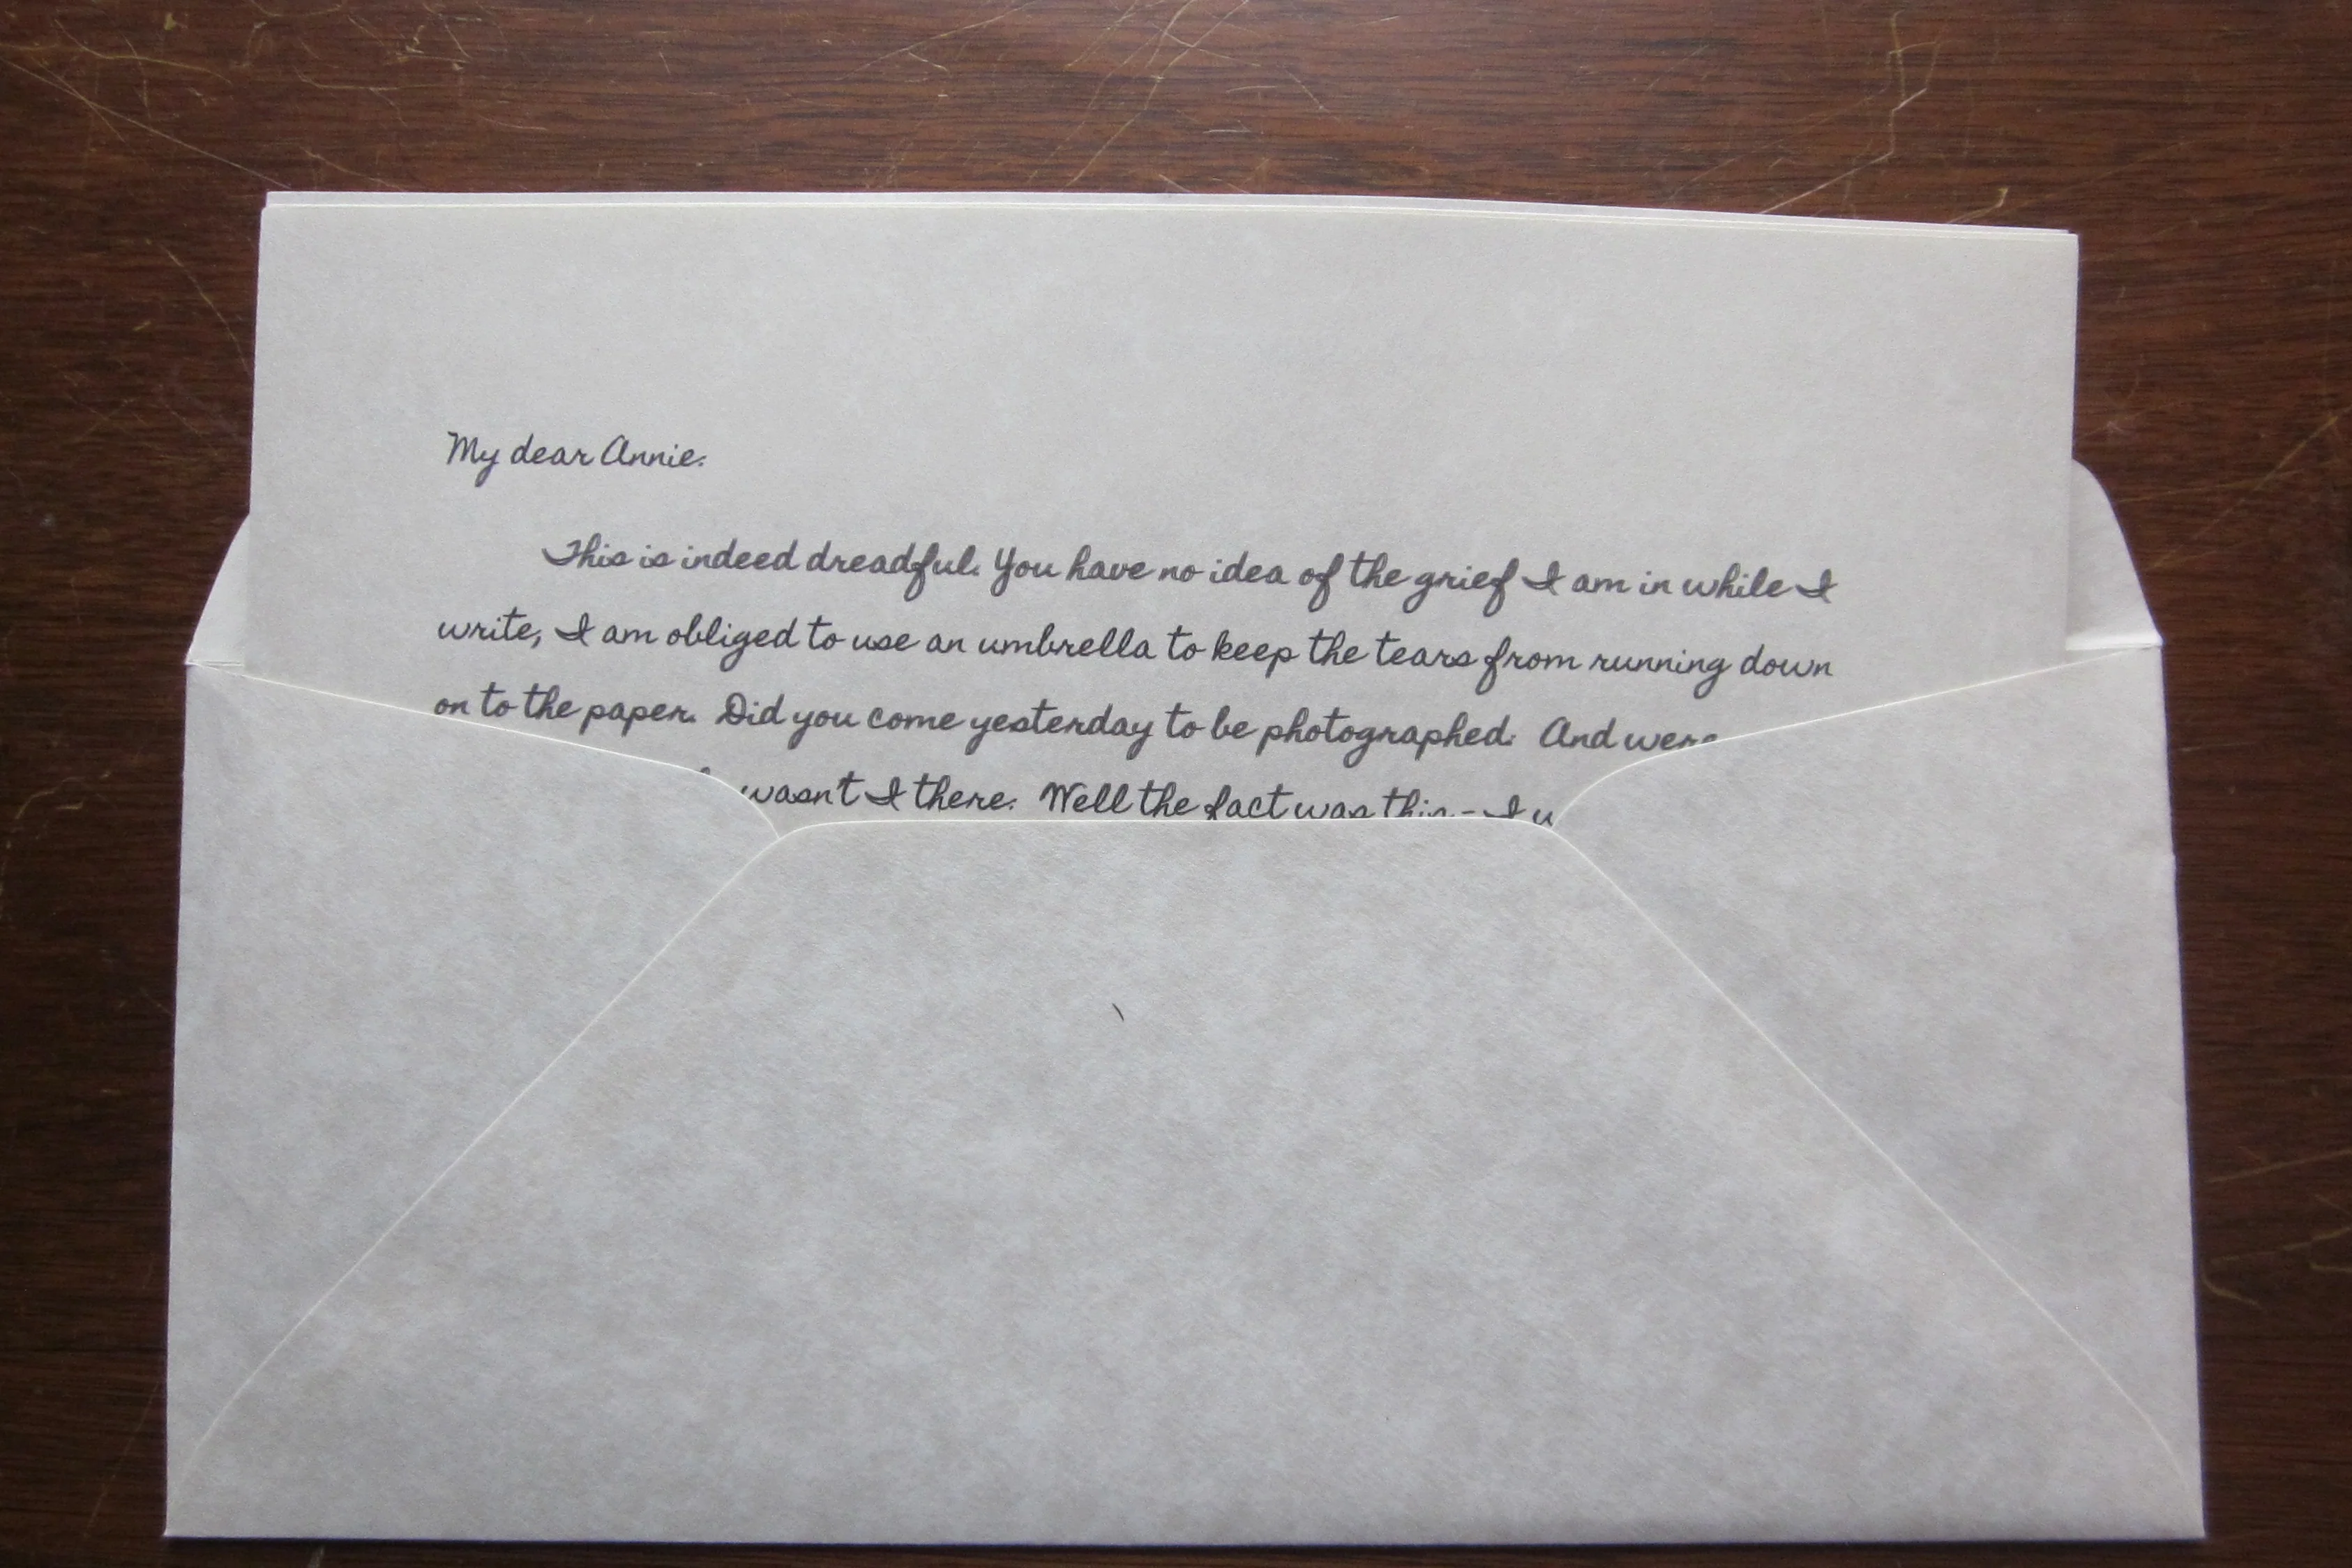 My dear Annie:
This is indeed dreadful. You have no idea of the grief I am in while I
write, I am obliged to use an umbrella to keep the tears from running down
on to the paper. Did you come yesterday to be photographed: And were
wasn't I there: Well the fact was this - I